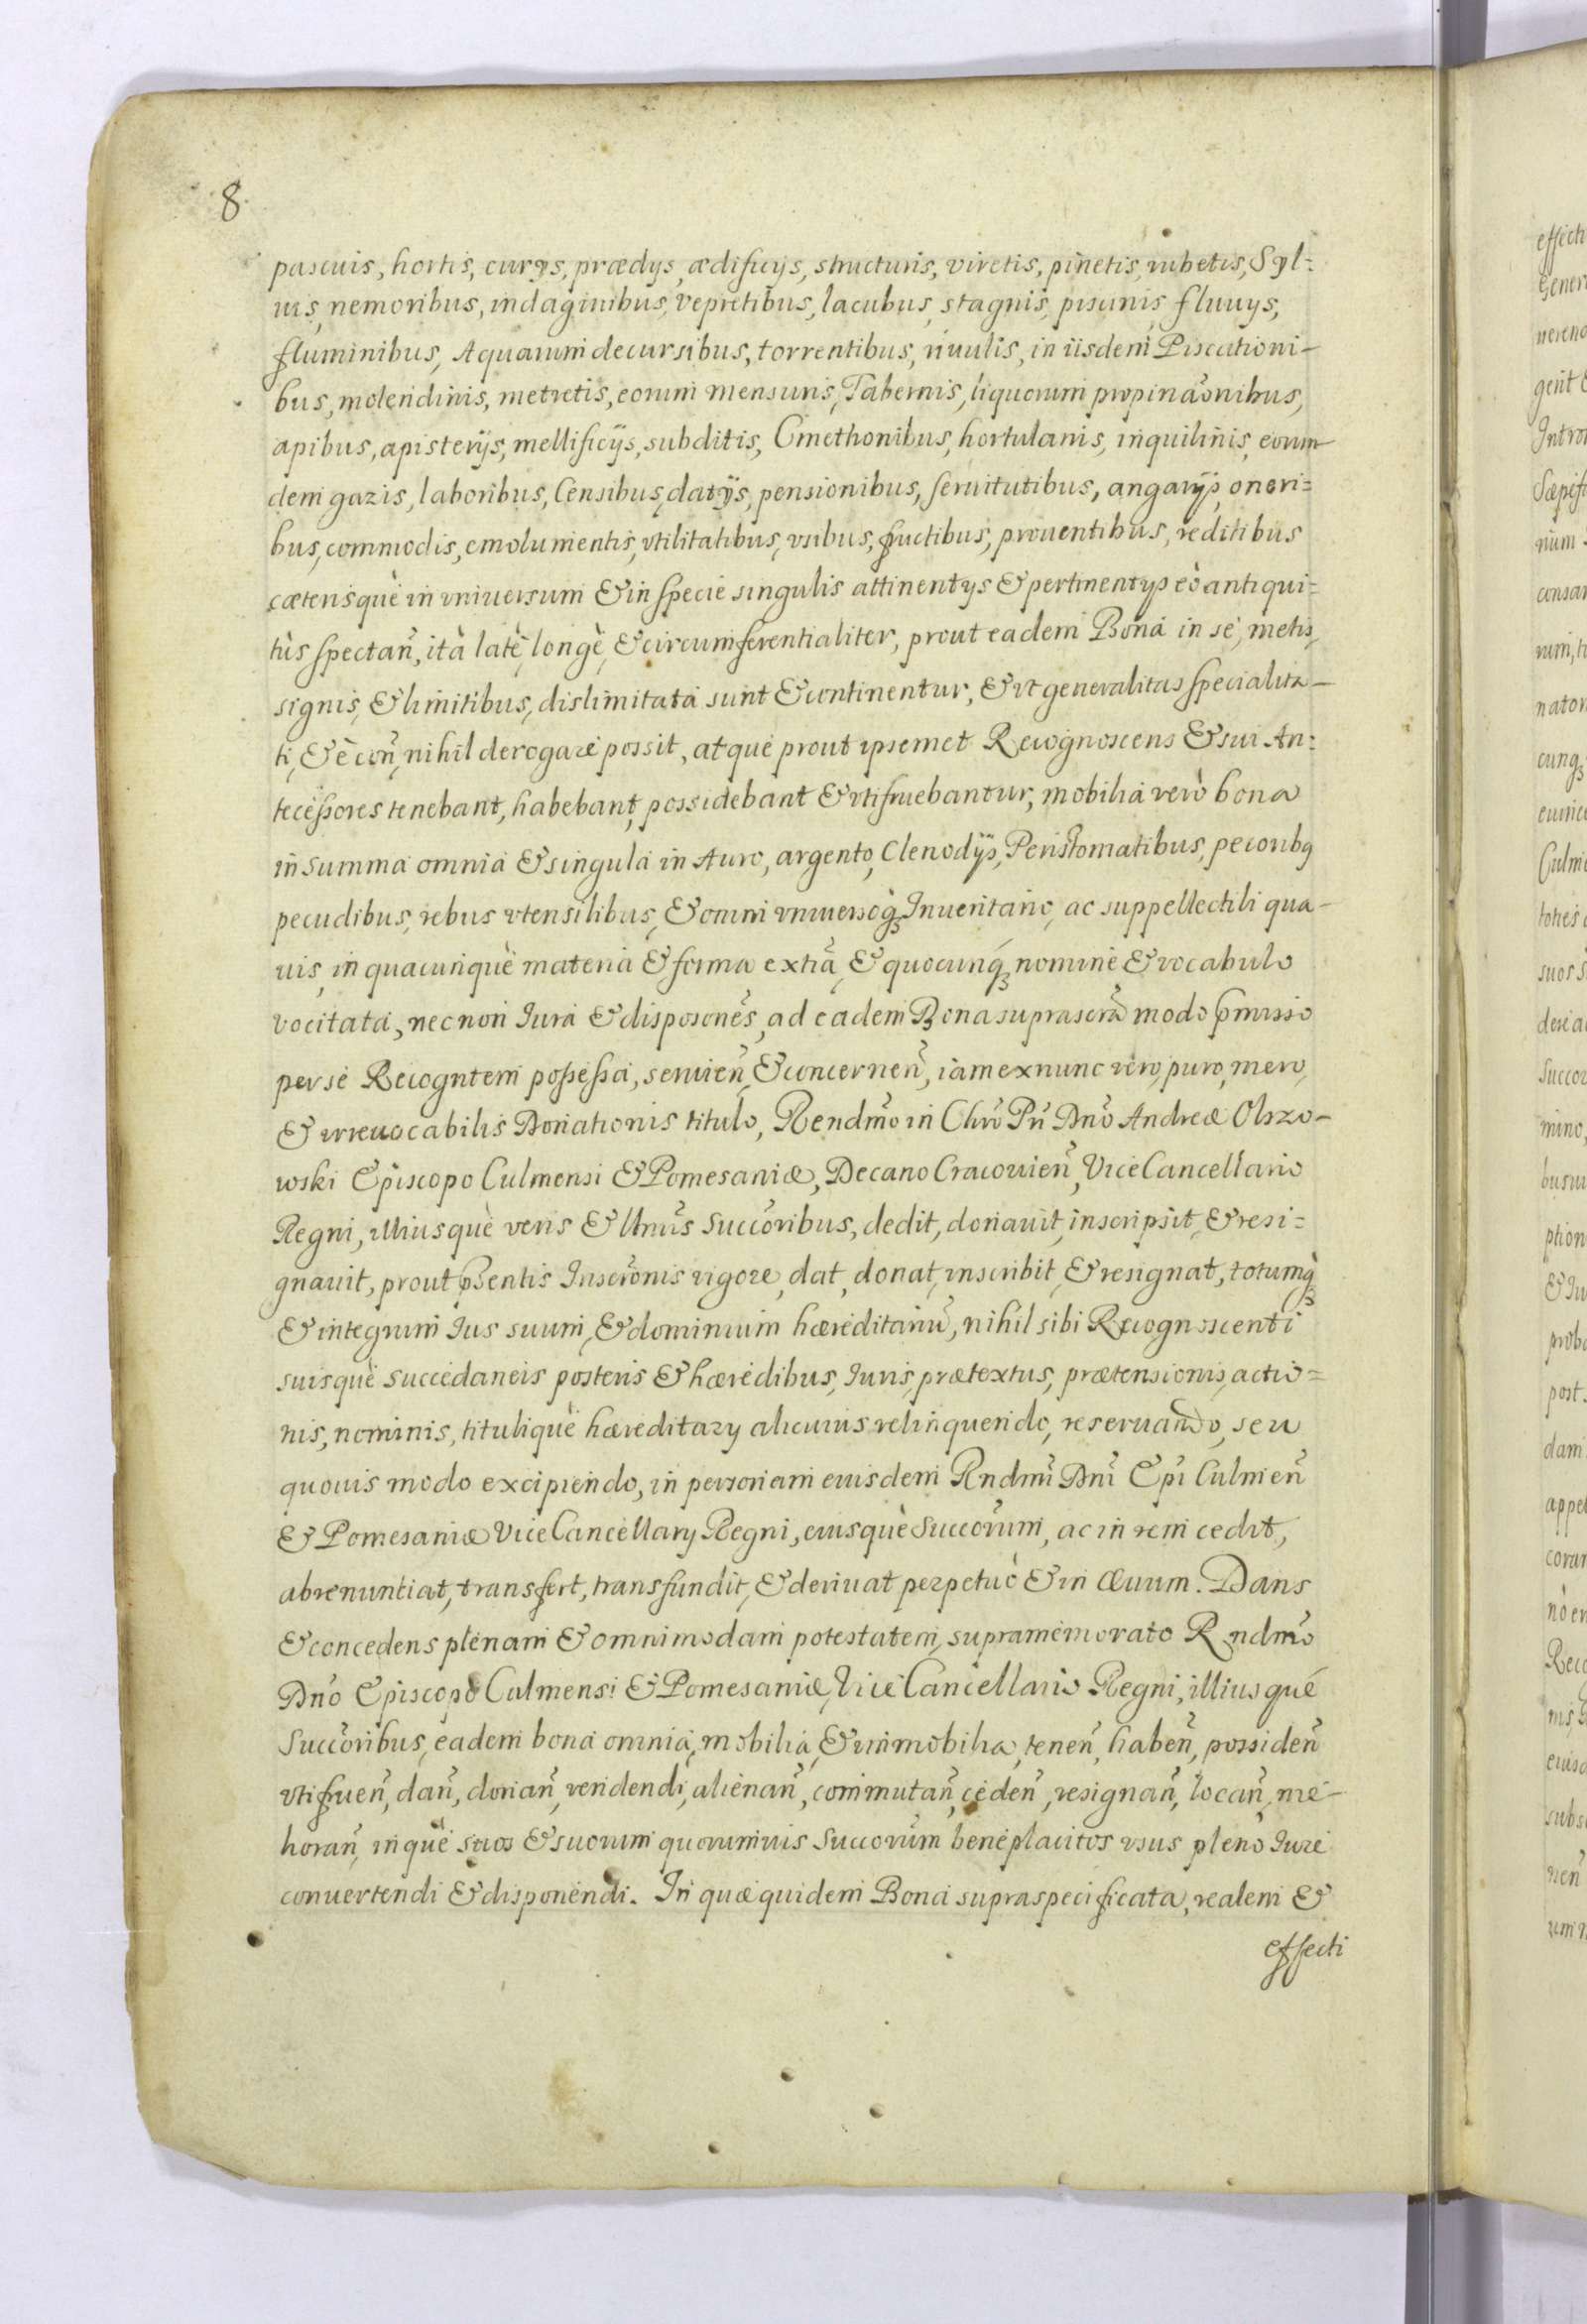 8
pascuis, hortis, curijs, prædijs, ædificijs, structuris, viretis, pinetis, rubetis, Syl=
uis, nemoribus, indaginibus, vepretibus, lacubus, stagnis, piscinis, fluuijs,
fluminibus, Aquarum decursibus, torrentibus, riuulis, in iisdem Piscationi-
bus, molendinis, metretis, eorum mensuris, Tabernis, liquorum propinaõnibus,
apibus, apisterijs, mellificijs, subditis, Cmethonibus, hortulanis, inquilinis, eorum-
dem gazis, laboribus, Censibus, datijs, pensionibus, seruitutibus, angarijs, oneri=
bus, commodis, emolumentis, vtilitatibus, vsibus, fructibus, prouentibus, reditibus
cæterisquè in vniuersum & in specie singulis attinentijs & pertinentijs eò antiqui=
tùs spectañ, ità latè, longè, & circumferentialiter, prout eadem Bona in se, metis,
signis, & limitibus, dislimitata sunt & continentur, & vt generalitas specialita-
ti, & è coñ, nihil derogare possit, atque prout ipsemet Recognoscens & sui An=
tecessores tenebant, habebant, possidebant & vtifruebantur, mobilia verò bona
in summa omnia & singula in Auro, argento, Clenodijs, Peristomatibus, pecoribq
pecudibus, rebus vtensilibus, & omni vniuersoq Inuentario, ac suppellectili qua-
uis, in quacunquè materia & forma extiã, & quocunq nomine & vocabulo
vocitata, nec non Iura & disposoñes, ad eadem Bona suprascrã modo pmisso
per se Recogntem possessa, seruieñ, & concerneñ, iam ex nunc vero, puro, mero,
& irreuocabilis Donationis titulo, Rendmõ in Chrõ Pri Dnõ Andreæ Olszo-
wski Episcopo Culmensi & Pomesaniæ, Decano Cracouieñ, Vice Cancellario
Regni, illiusquè veris & ltmis Succoribus, dedit, donauit, inscripsit, & resi=
gnauit, prout psentis Inscronis vigore, dat, donat, inscribit, & resignat, totumq
& integrum Ius suum, & dominium hæreditariũ, nihil sibi Recognoscenti
suisquè succedaneis posteris & hæredibus, Iuris, prætextus, prætensionis, actio=
nis, nominis, tituliquè hæreditarij alicuius relinquendo, reseruando, seu
quouis modo excipiendo, in personam eiusdem Rndmi Dni Epi Culmeñ
& Pomesaniæ Vice Cancellarij Regni, eiusquè Succorum, ac in rem cedit,
abrenuntiat, transfert, transfundit, & deriuat perpetuò & in æuum. Dans
& concedens plenam & omnimodam potestatem, supramemorato Rndmõ
Dnõ Episcopo Culmensi & Pomesaniæ, Vice Cancellario Regni, illiusqué
Succoribus, eadem bona omnia, mobilia, & immobilia, teneñ, habeñ, possideñ
vtifrueñ, dañ, donañ, vendendi, alienañ, commutañ, cedeñ, resignañ, locañ, me-
liorañ, inquè suos & suorum quorumuis Succorum beneplacitos vsus pleno Iure
conuertendi & disponendi. In quæ quidem Bona supraspecificata, realem &
effecti